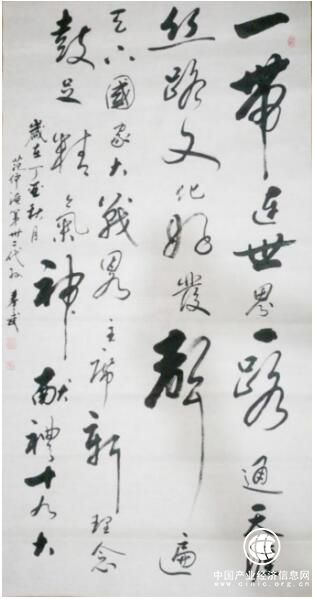 一带连世界一路通天涯
丝路文化好发声遍
天下国家大战略主席新理念
鼓足精气神献礼十九大
岁在丁酉秋月
范仲淹第卅二代孙
中国产业经济信息网
www.cinic.org.cn